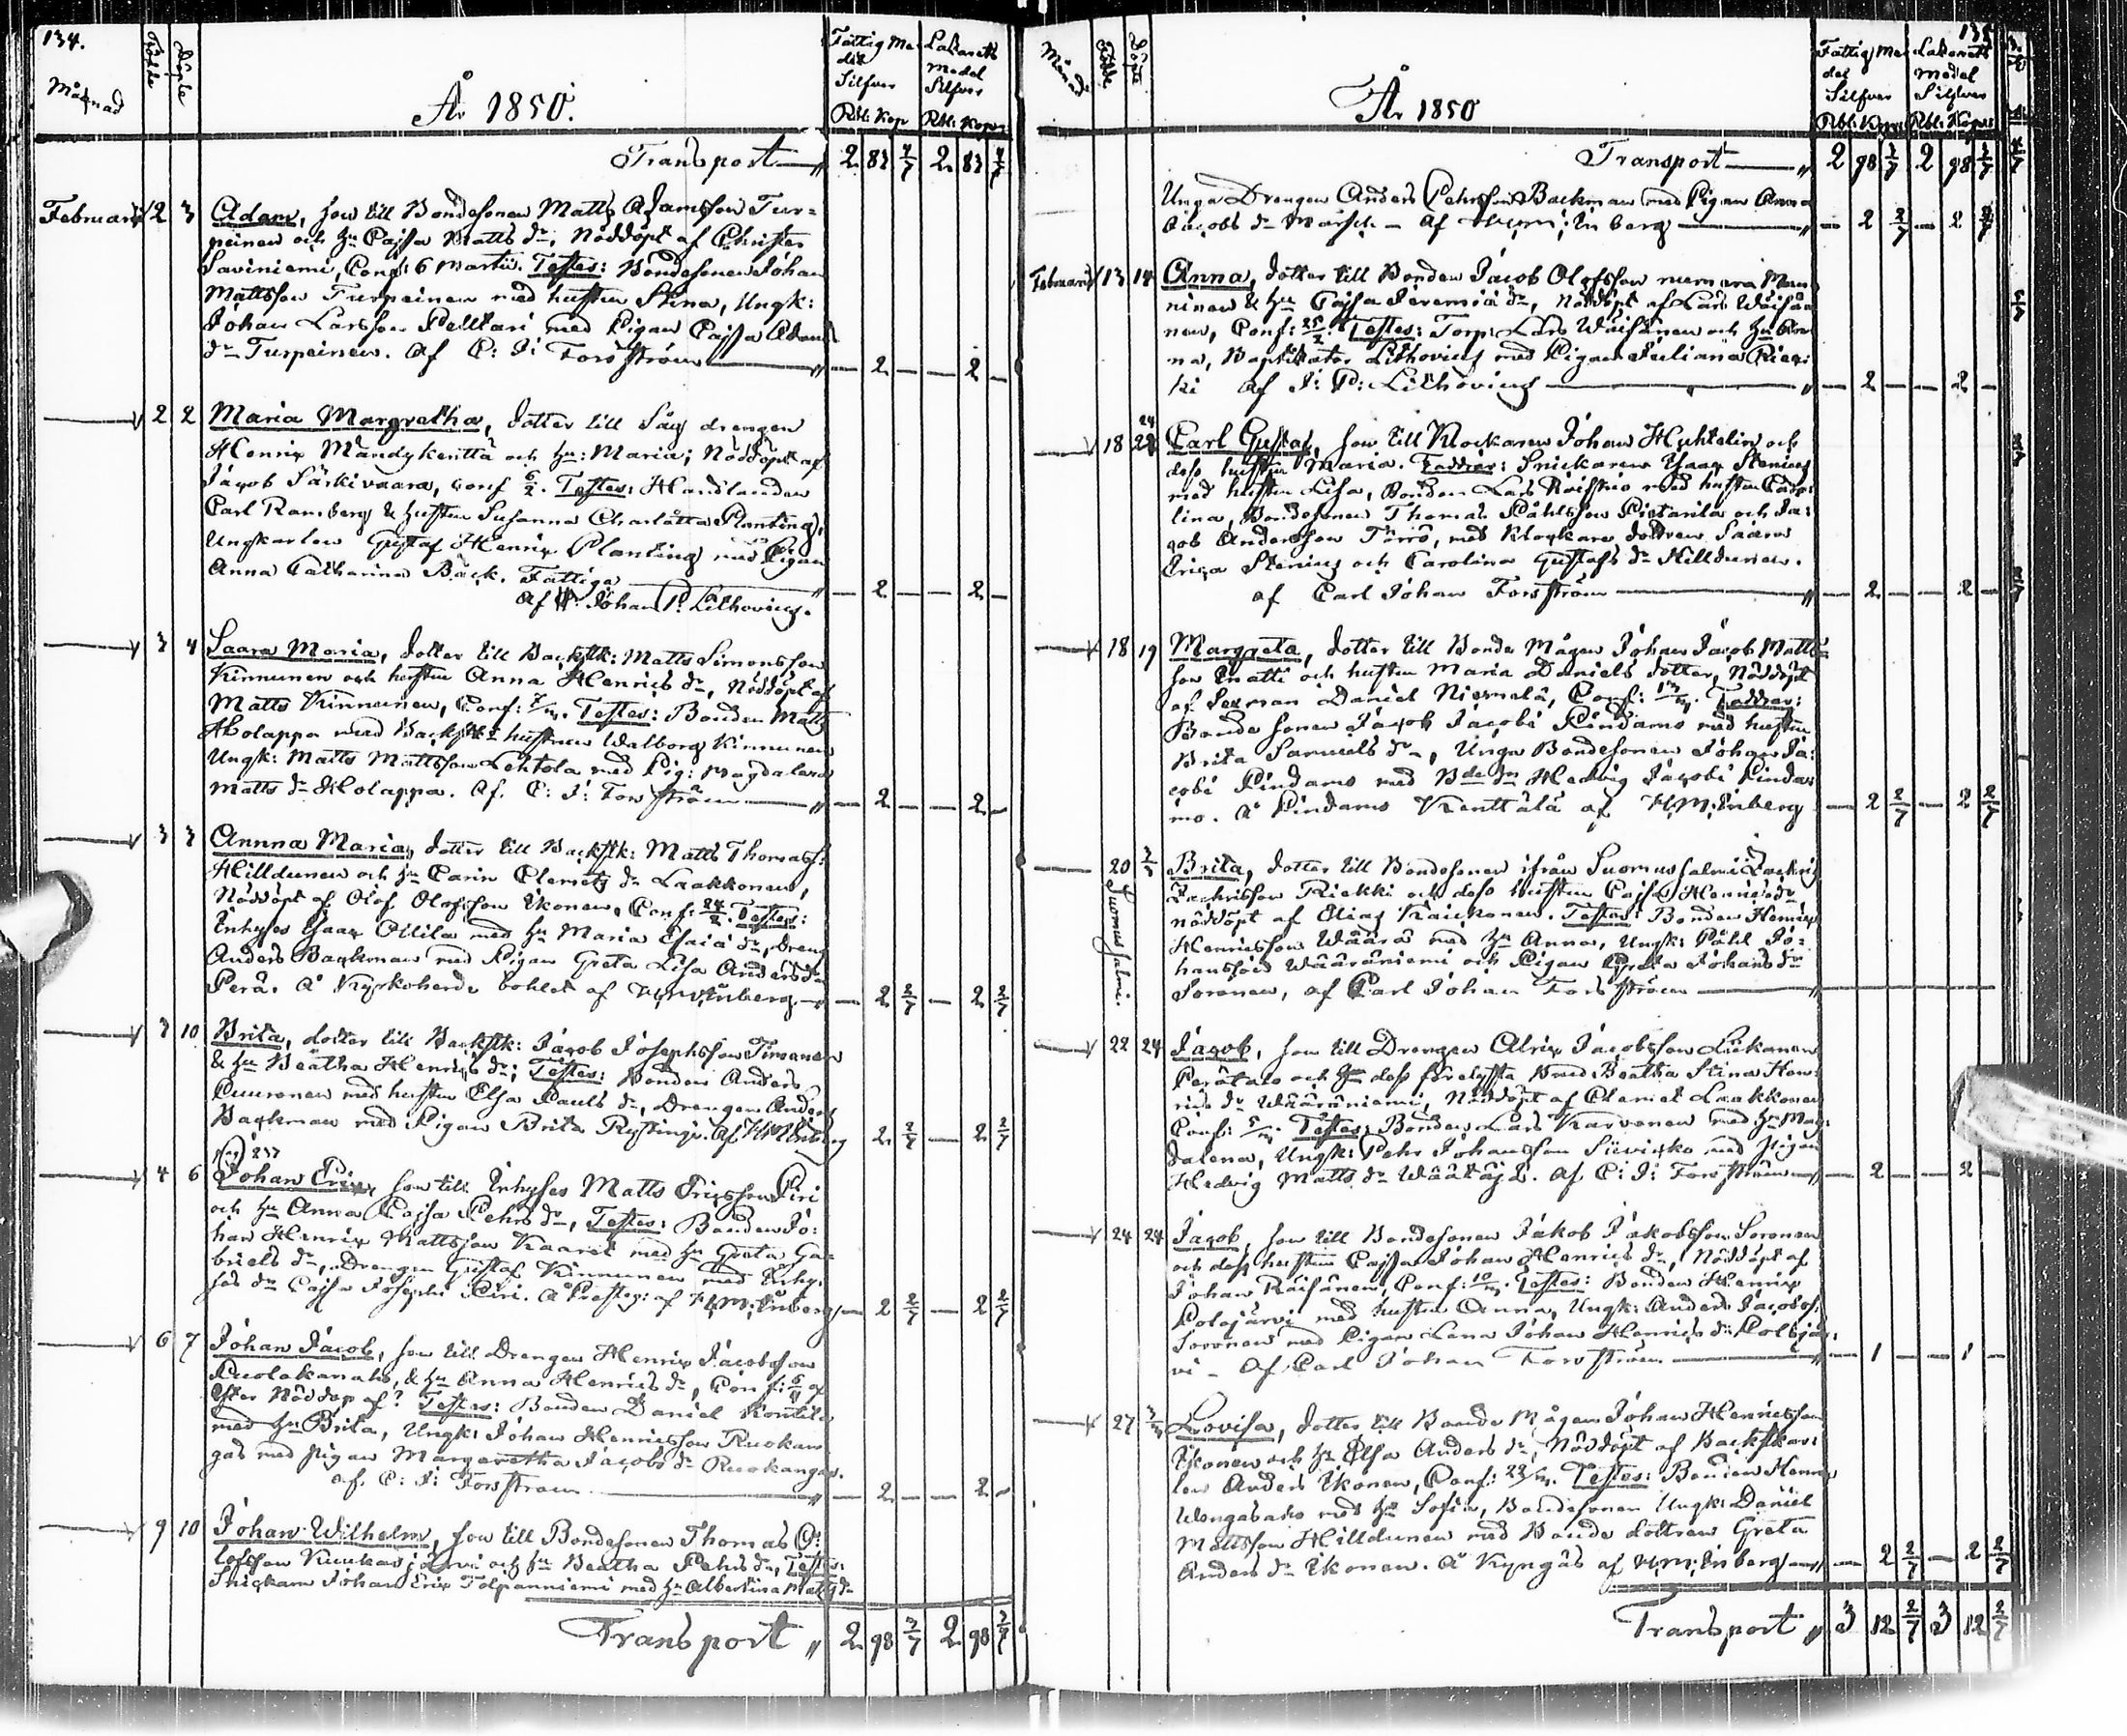 134.
Månad
Födde
Döpte
År 1850.
Fattig Me
del
Silfver
Rbl: Kop
Lazarets
medel
Silfver
Rbl: Kop
Transport — " 2 83 4/7 2 83 4/7
Februari 2 3 Adam, son till Bondesonen Matts Adamsson Tur=
peinen och hu Cajsa Matts dr, Nöddöpt af Christer
Saviniemi, Conf: 6 Martii. Testes: Bondesonen Johan
Mattsson Turpeinen med hustru Stina, Ungk:
Johan Larsson Pelttari med Pigan Cajsa Adams
dr Turpeinen. Af C: J: Forsström — " — 2 — — 2 —
2 2 Maria Margretha, dotter till Såg drengen
Henrix Mändykenttä och hu: Maria; Nöddöpt af
Jacob Särkivaara, conf 6/2. Testes: Handlanden
Carl Ramberg & hustru Susanna Charlåtta Planting,
Ungkarlen Gustaf Henrix Planting med Pigan
Anna Catharina Bäck. Fattiga — " — 2 — — 2 —
Af Johan P. Lithovius.
3 4 Saara Maria, dotter till Backstk: Matts Simonsson
Kinnunen och hustru Anna Henrics dr, Nöddöpt af
Matts Kinnunen, Conf: Testes: Bonden Matts
Holappa med Backstk: hustrun Walborg Kinnunen
Ungk: Matts Mattsson Lehtola med Pig: Magdalena
Matts dr Holappa. Af C: J: Forsström — " — 2 — — 2 —
3 3 Annna Maria, dotter till Backstk: Matts Thomass:
Hilldunen och hu Carin Clemets dr Laakkonen,
Nöddöpt af Olof Olofsson Ikonen, Conf: 24/2. Testes:
Inhyses Isaac Ollila med hu Maria Esaiæ dr, Dreng
Anders Backman med Pigan Greta Lisa Anders dr
Perä. å Kyrkoherde bohlet af H.M. Enberg — — 2 2/7 — 2 2/7
3 10 Brita, dotter till Backstk: Jacob Josephsson Timonen
& hu Beatha Henrics dr; Testes: Bonden Anders
Puuronen med hustru Elsa Pauls dr, Drengen Anders
Backman med Pigan Brita Af HMEnberg 2 2/7 — 2 2/7
pag 237
4 6 Johan Eric, son till Inhyses Matts Ericsson Piri
och hu Anna Cajsa Pehrs dr, Testes: Bonden Jo:
han Henrix Mattsson Kaaret med hu Greta Ga=
briels dr, Drengen Gustaf Kinnunen med Inhy:
ses dr Cajsa Josephs Piri. å Prestg: af H.M. Enberg — 2 2/7 — 2 2/7
6 7 Johan Jacob, son till Drengen Henrix Jacobsson
& hu Anna Henrics dr, Conf:
efter Nöddop af? Testes: Bonden Daniel Kontila
med hu Brita, Ungk: Johan Henricsson Ruokan
gas med pigan Margaretha Jacobs dr Ruokangas.
af C: J: Forsström — " — 2 — — 2 —
9 10 Johan Wilhelm, son till Bondesonen Thomas O:
lofsson Kuukasjärvi och hu Beatha Pehrs dr, Testes:
Snickarn Johan Eric Tolpanniemi med hu Albertina Matts dr
Transport " 2 98 3/7 2 98 3/7
135
Månad
Födde
Döpte
År 1850
Fattig Me
del
Silfver
Rbl: Kop
Lazarets
medel
Silfver
Rbl: Kop
Transport — " 2 98 3/7 2 98 3/7
Unga Drengen Anders Pehrsson Backman med Pigan Anna
Jacobs dr Marsch — af H.M. Enberg — " — 2 2/7 — 2 2/7
Februari 13 14 Anna, dotter till Bonden Jacob Olofsson numera Man
ninen & hu Cajsa Jeremiæ dr, Nöddöpt af Lars Wäisä
nen, Conf: 25/2. Testes: Torp: Lars Wäisänen och hu An
na, Lithovius med Pigan Juliana
ki af J: P: Lithovius — " — 2 — — 2 —
18 24 Carl Gustaf, son till Klockaren Johan Hyhtelin och
dess hustru Maria. Faddrar: Snickaren Isaac Stenius
med hustru Lisa, Bonden Lars Kaissio med hustru Caro:
lina, Bondesonen Thomas Påhlsson Pistarila och Ja:
cob Andersson Törrö, med Klockare dottren Saara
Erica Stenius och Carolina Gustafs dr Hilldunen.
af Carl Johan Forsström — " — 2 — — 2 —
18 19 Margreta, dotter till Bonde Mågen Johan Jacob Matts
son Matti och hustru Maria Daniels dotter, Nöddöpt
af Sexman Daniel Niemelä, Conf: Faddrar:
Bonde sonen Jacob Jacobi Pindamo med hustru
Brita Samuels dr, Unga Bondesonen Johan Ja:
cobi Pindamo med Bde dn Hedvig Jacobi Pinda
mo. å Pindamo Kenttälä af H.M. Enberg — 2 2/7 — 2 2/7
20 Brita, dotter till Bondesonen ifrån Suomussalmi Zachris
Suomussalmi.
Zachrisson Riekki och dess hustru Cajsa Henrics dr
nöddöpt af Elias Kaickonen. Testes: Bonden Henrix
Henricsson Wäärä med hu Anna, Ungk: Påhl Jo:
hansson Wääräniemi och Pigan Greta Johans dr
Soronen, af Carl Johan Forsström — "
22 24 Jacob, son till Drengen Alrix Jacobsson Liikanen
Perätalo och dess förelofta Beatha Stina Hen:
rics dr Wääräniemi, Nöddöpt af Clemet Laakkonen
Conf: Testes: Bonden Lars Karvonen med hu Mag:
dalena, Ungk: Pehr Johansson Siiwicko med pigan
Hedvig Matts dr Wäätäjä. af C: J: Forsström — 2 — — 2 —
24 24 Jacob, son till Bondesonen Jakob Jakobsson Soronen
och dess hustru Cajsa Johan Henrics dr, Nöddöpt af
Johan Räisänen, Conf: Testes: Bonden Henrix
Polojärvi med hustru Anna, Ungk: Anders Jacobss:
Soronen med Pigan Lena Johan Henrics dr Polojär:
vi — Af Carl Johan Forsström — " — 1 — — 1 —
27 Lovisa, dotter till Bonde Mågen Johan Henricsson
Ikonen och hu Elsa Anders dr, Nöddöpt af Backstkar:
len Anders Ikonen, Conf: Testes: Bonden Henrix
med hu Sofia, Bondesonen Ungk: Daniel
Mattsson Hilldunen med Bonde dottren Greta
Anders dr Ikonen. å Kyngäs af H.M. Enberg — " — 2 2/7 — 2 2/7
Transport " 3 12 2/7 3 12 2/7